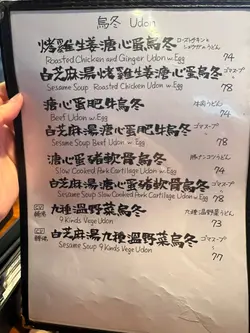 烏冬 Udon
烤雞生姜溏心蛋烏冬
ローストチキンと
ショウガうどん
Roasted Chicken and Ginger Udon w. Egg
74
白芝麻湯烤雞生姜溏心蛋烏冬
ゴマスープ
Sesame Soup Roasted Chicken Udon w. Egg
78
溏心蛋肥牛烏冬
牛肉うどん
Beef Udon w. Egg
74
白芝麻湯溏心蛋肥牛烏冬
ゴマスープ
Sesame Soup Beef Udon w. Egg
78
溏心蛋豬軟骨烏冬
豚ナンコツうどん
Slow Cooked Pork Cartilage Udon w. Egg
74
白芝麻湯溏心蛋豬軟骨烏冬
ゴマスープ
Sesame Soup Slow Cooked Pork Cartilage Udon w. Egg
78
九種溫野菜烏冬
九種温野菜うどん
9 Kinds Vege Udon
73
白芝麻湯九種溫野菜烏冬
ゴマスープ
Sesame Soup 9 Kinds Vege Udon
77